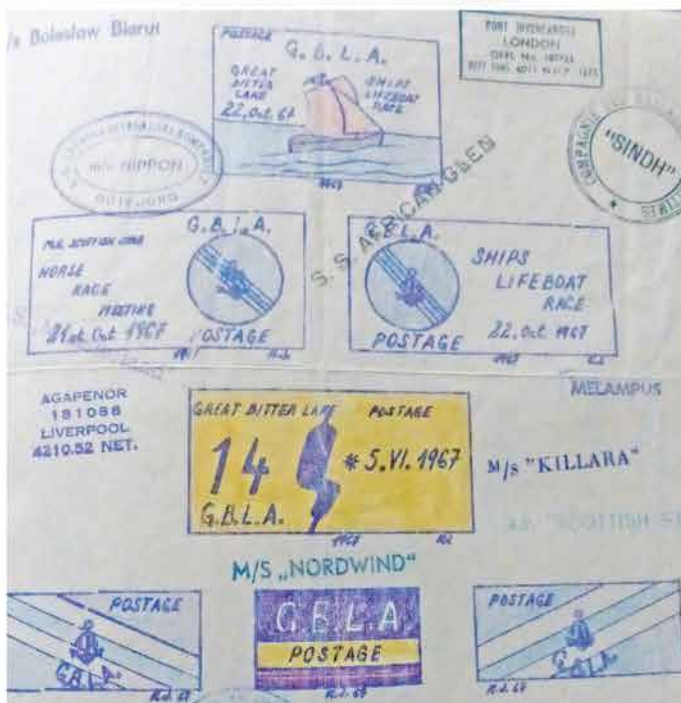 /s Boleslaw Bierut
POSTAGE
G.B.L.A.
GREAT
BITTER
LAKE
22.Oct.67
SHIPS
LIFEBOAT
RACE
1967
LONDON
"SINDH"
m/s NIPPON
GÖTEBORG
S.S. AFRICAN GLEN
G.B.L.A.
M.S. SCOTTISH
HORSE
RACE
MEETING
21st Oct 1967
POSTAGE
1967
G.B.L.A.
SHIPS
LIFEBOAT
RACE
22.Oct 1967
POSTAGE
1967
AGAPENOR
181088
LIVERPOOL
4210.52 NET.
MELAMPUS
GREAT BITTER LAKE POSTAGE
14 * 5.VI.1967
G.B.L.A.
1967
M/s "KILLARA"
"SCOTTISH
M/S „NORDWIND"
POSTAGE
G.B.L.A.
G.B.L.A.
POSTAGE
POSTAGE
G.B.L.A.